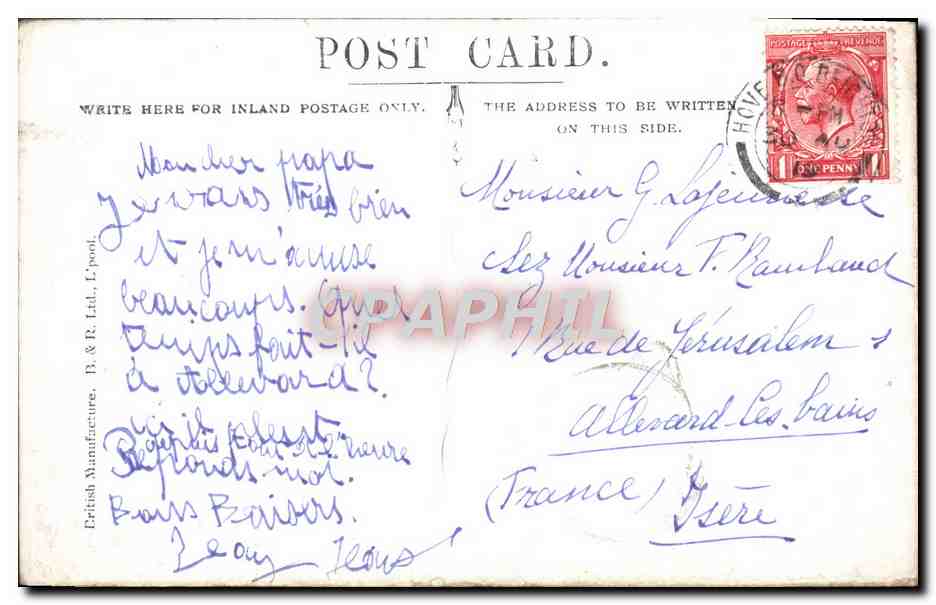 POST CARD.
WRITE HERE FOR INLAND POSTAGE ONLY.
THE ADDRESS TO BE WRITTEN
ON THIS SIDE.
POSTAGE REVENUE
1 ONE PENNY 1
HOVE
Mon cher papa
Je vais très bien
et je m'amuse
beaucoups. Quel
temps fait-il
à Allevard?
ici il pleut
depuis tout à l'heure
Réponds moi.
Bons Baisers.
Jean
Monsieur G Lajeunesse
chez Monsieur F. Rambaud
Rue de Jérusalem
Allevard-les-bains
(France)
Isère
British Manufacture. B. & R. Ltd., L'pool.
CPAPHIL